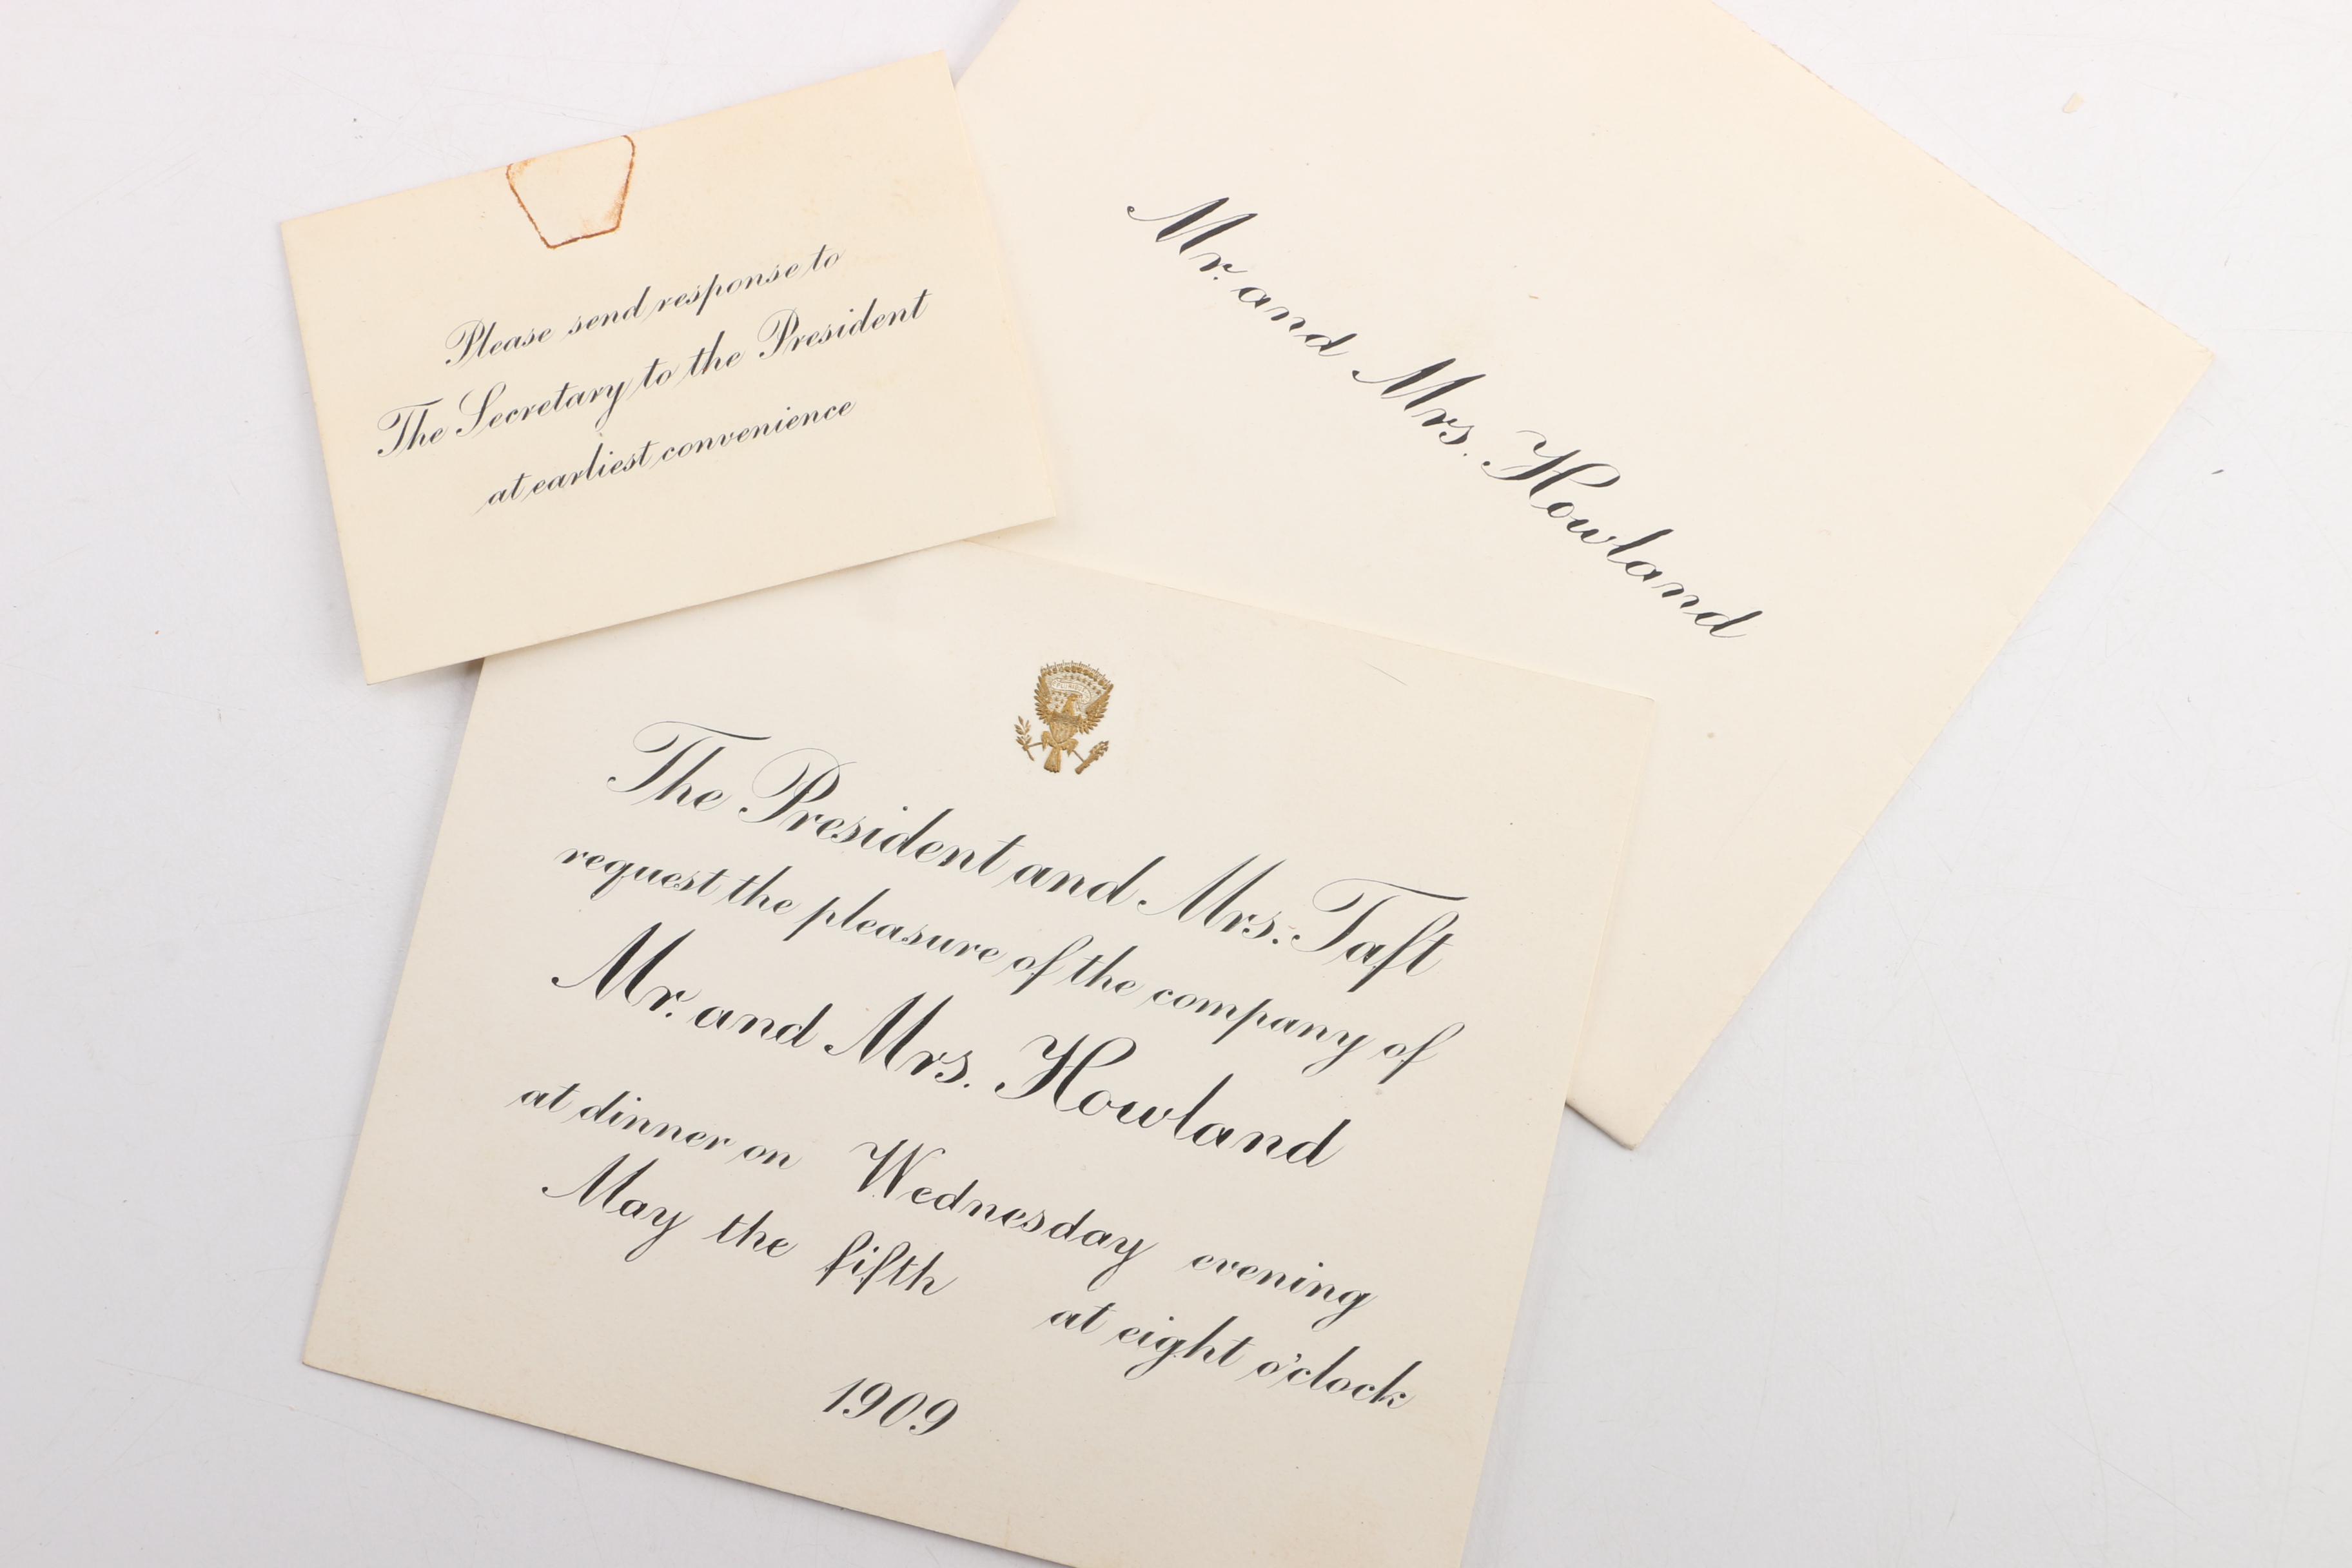 Please send response to
The Secretary to the President
at earliest convenience
Mr. and Mrs. Howland
The President and Mrs. Taft
request the pleasure of the company of
Mr. and Mrs. Howland
at dinner on Wednesday evening
May the fifth at eight o'clock
1909